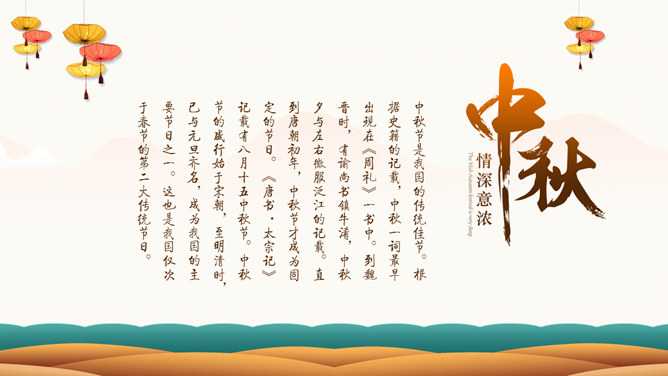 中秋
情深意浓
The Mid-Autumn festival is very deep
中秋节是我国的传统佳节。根
据史籍的记载，中秋一词最早
出现在《周礼》一书中。到魏
晋时，有谕尚书镇牛渚，中秋
夕与左右微服泛江的记载。直
到唐朝初年，中秋节才成为固
定的节日。《唐书·太宗记》
记载有八月十五中秋节。中秋
节的盛行始于宋朝，至明清时，
已与元旦齐名，成为我国的主
要节日之一。这也是我国仅次
于春节的第二大传统节日。